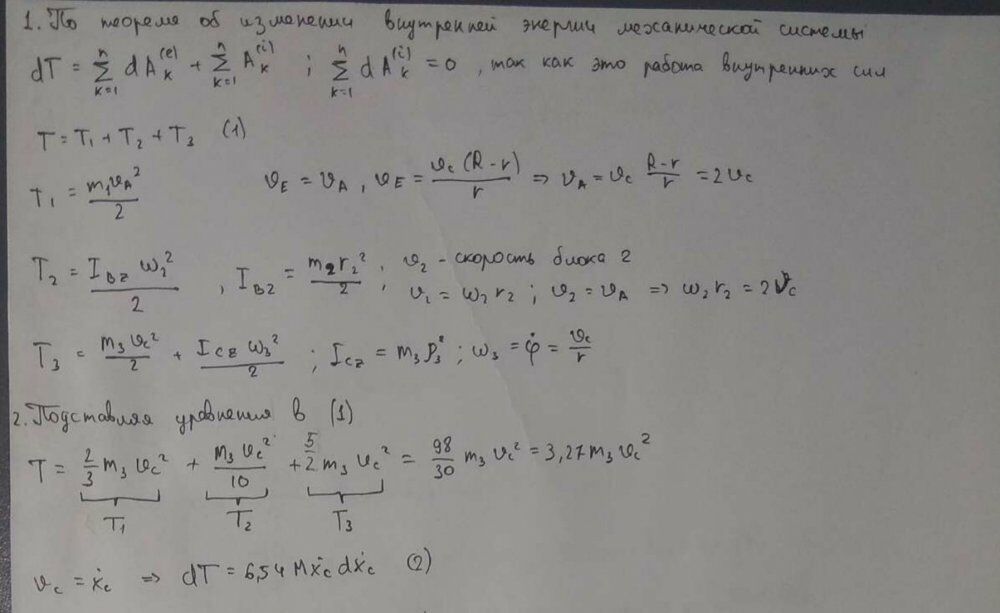 1. По теореме об изменении внутренней энергии механической системы
dT = Σ_{k=1}^{n} dA_k^{(e)} + Σ_{k=1}^{n} A_k^{(i)} ; Σ_{k=1}^{n} dA_k^{(i)} = 0 , так как это работа внутренних сил
T = T₁ + T₂ + T₃ (1)
T₁ = m₁υ_A²/2 υ_E = υ_A , υ_E = υ_c (R-r)/r ⇒ υ_A = υ_c R-r/r = 2υ_c
T₂ = I_{BZ} ω₂²/2 , I_{BZ} = m₂r₂²/2 ; υ₂ - скорость блока 2
υ₂ = ω₂r₂ ; υ₂ = υ_A ⇒ ω₂r₂ = 2υ_c
T₃ = m₃υ_c²/2 + I_{CZ} ω₃²/2 ; I_{CZ} = m₃ρ₃² ; ω₃ = φ̇ = υ_c/r
2. Подставляя уровнения в (1)
T = 2/3 m₃υ_c² + m₃υ_c²/10 + 5/2 m₃υ_c² = 98/30 m₃υ_c² = 3,27m₃υ_c²
T₁ T₂ T₃
υ_c = ẋ_c ⇒ dT = 6,54 Mẋ_c dẋ_c (2)